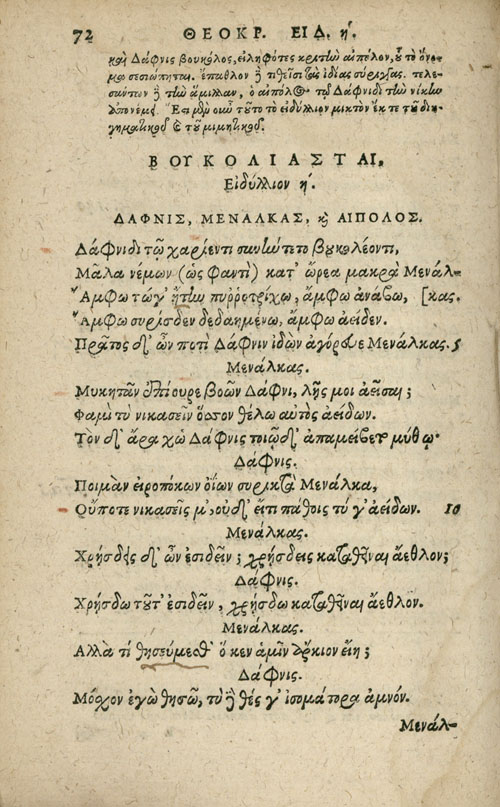 72 ΘΕΟΚΡ. ΕΙΔ. ή.
καὶ Δάφνις βουκόλος, εἰληφότες κριτὴν αἰπόλον, οὗ τὸ ὄνο-
μα σεσιώπηται. ἔπαθλον ἢ τιθεῖσι τὰς ἰδίας σύριγγας. τελε-
σάντων ἢ τὴν ἅμιλλαν, ὁ αἰπόλος τῷ Δάφνιδι τὴν νίκην
ἀπονέμει. Ἔστι μὲν οὖν τοῦτο τὸ εἰδύλλιον μικτὸν ἔκ τε τοῦ διη-
γηματικοῦ καὶ τοῦ μιμητικοῦ.
ΒΟΥΚΟΛΙΑΣΤΑΙ,
Εἰδύλλιον ή.
ΔΑΦΝΙΣ, ΜΕΝΑΛΚΑΣ, καὶ ΑΙΠΟΛΟΣ.
Δάφνιδι τῷ χαρίεντι συνήντετο βουκολέοντι,
Μᾶλα νέμων (ὡς φαντὶ) κατ' ὤρεα μακρὰ Μενάλ-
Ἄμφω τώγ' ἤτην πυῤῥοτρίχω, ἄμφω ἀνάβω, [κας.
Ἄμφω συρίσδεν δεδαημένω, ἄμφω ἀείδεν.
Πρᾶτος δ' ὦν ποτὶ Δάφνιν ἰδὼν ἀγόρευε Μενάλκας. 5
Μενάλκας.
Μυκητᾶν ἐπίουρε βοῶν Δάφνι, λῇς μοι ἀεῖσαι;
Φαμὶ τὺ νικασεῖν ὅσσον θέλω αὐτὸς ἀείδων.
Τὸν δ' ἄρα χὠ Δάφνις τοιῷδ' ἀπαμείβετο μύθῳ·
Δάφνις.
Ποιμὰν εἰροπόκων ὀΐων συρικτὰ Μενάλκα,
Οὔποτε νικασεῖς μ', οὐδ' εἴτι πάθοις τύ γ' ἀείδων. 10
Μενάλκας.
Χρήσδεις δ' ὦν ἐσιδεῖν; χρήσδεις καταθεῖναι ἄεθλον;
Δάφνις.
Χρήσδω τοῦτ' ἐσιδεῖν, χρήσδω καταθεῖναι ἄεθλον.
Μενάλκας.
Ἀλλὰ τί θησεύμεσθ' ὅ κεν ἁμῖν ἄρκιον εἴη;
Δάφνις.
Μόσχον ἐγὼ θησῶ, τὺ ἢ θές γ' ἰσομάτορα ἀμνόν.
Μενάλ-